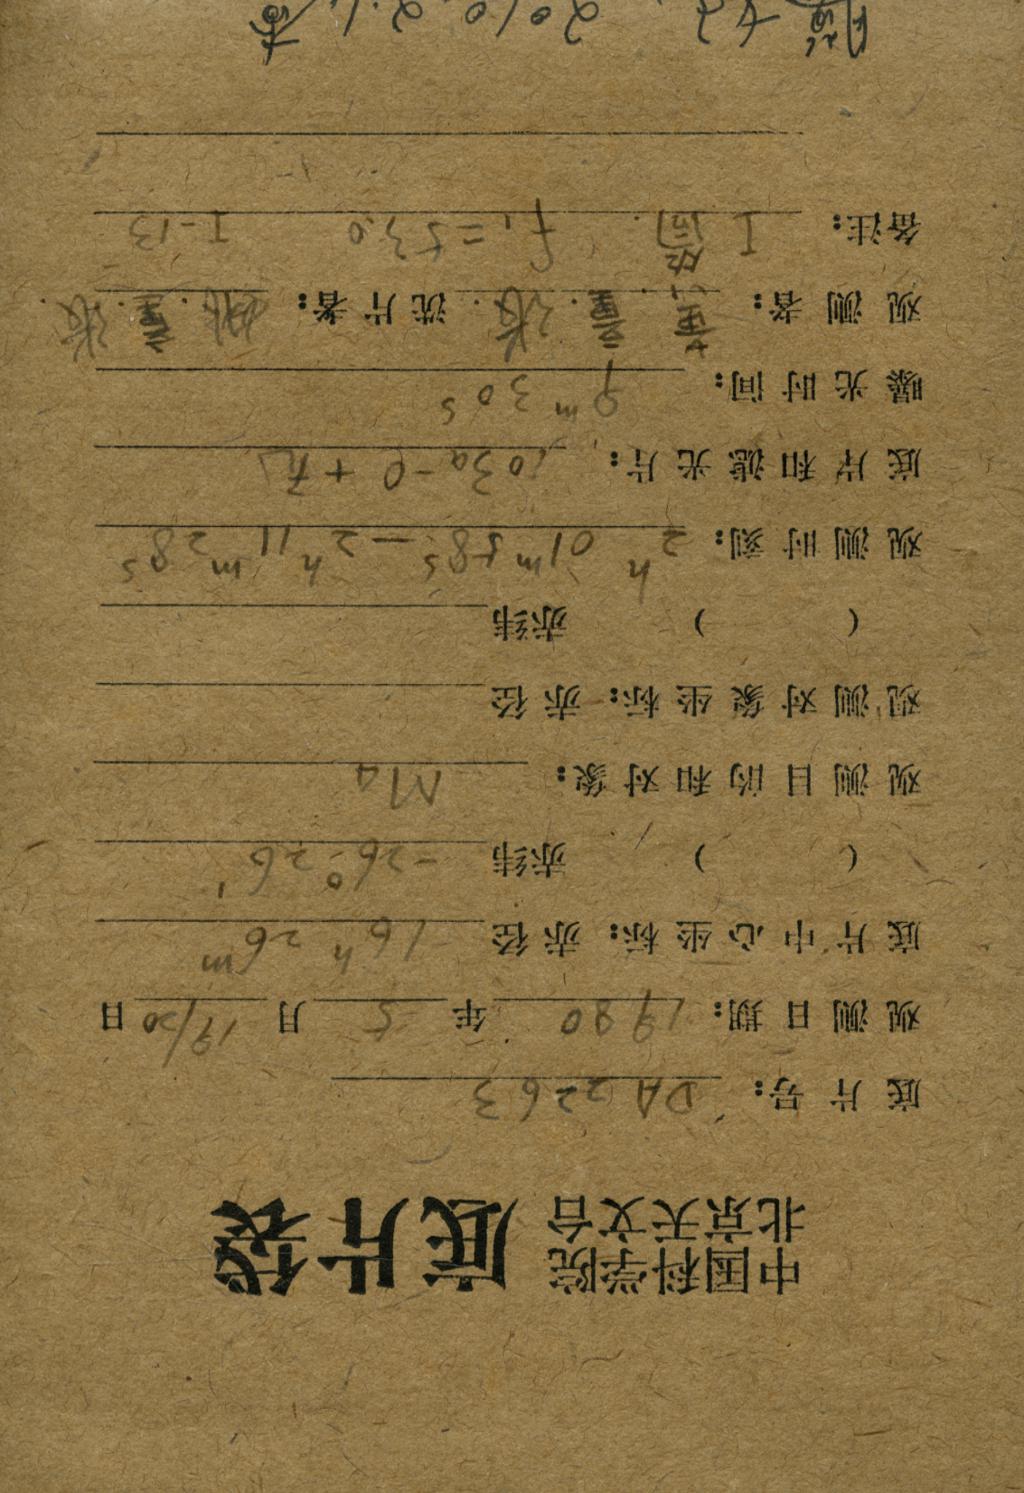 中国科学院
北京天文台 底片袋
底片号: DA2263
观测日期: 1990 年 5 月 19/20 日
底片中心坐标: 赤径 16h 26m
( ) 赤纬 -26° 26'
观测目的和对象: M4
观测对象坐标: 赤径
( ) 赤纬
观测时刻: 2h 01m58s — 2h 11m 28s
底片和滤光片: 103a-O +
曝光时间: 9m 30s
观测者: 董. 童. 张. 洗片者: 姚. 童. 张.
备注: I 筒 f1=530 I-13
2010.2.1